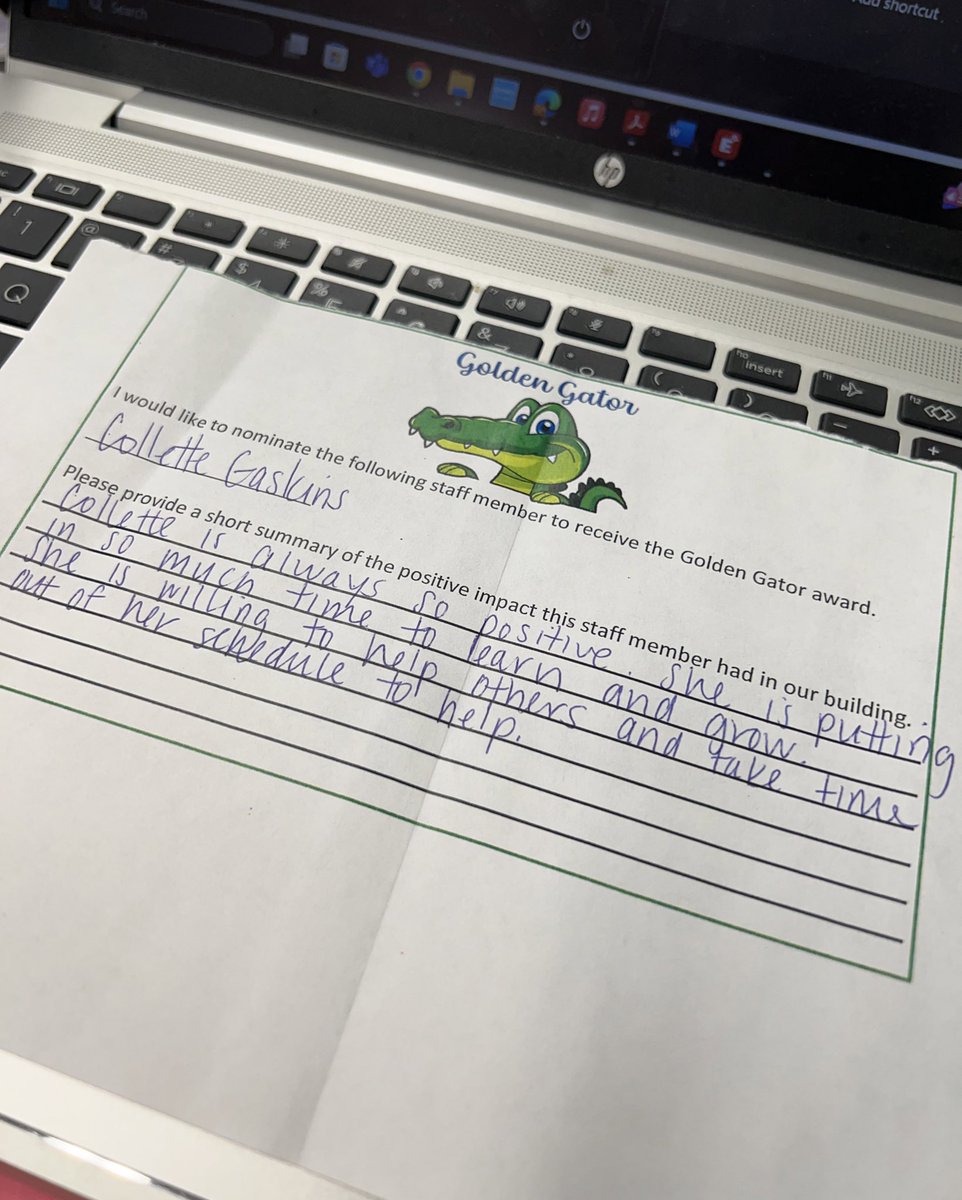 Search
Add shortcut
hp
insert
Golden Gator
I would like to nominate the following staff member to receive the Golden Gator award.
Collette Gaskins
Please provide a short summary of the positive impact this staff member had in our building.
Collette is always so positive. She is putting
in so much time to learn and grow.
She is willing to help others and take time
out of her schedule to help.